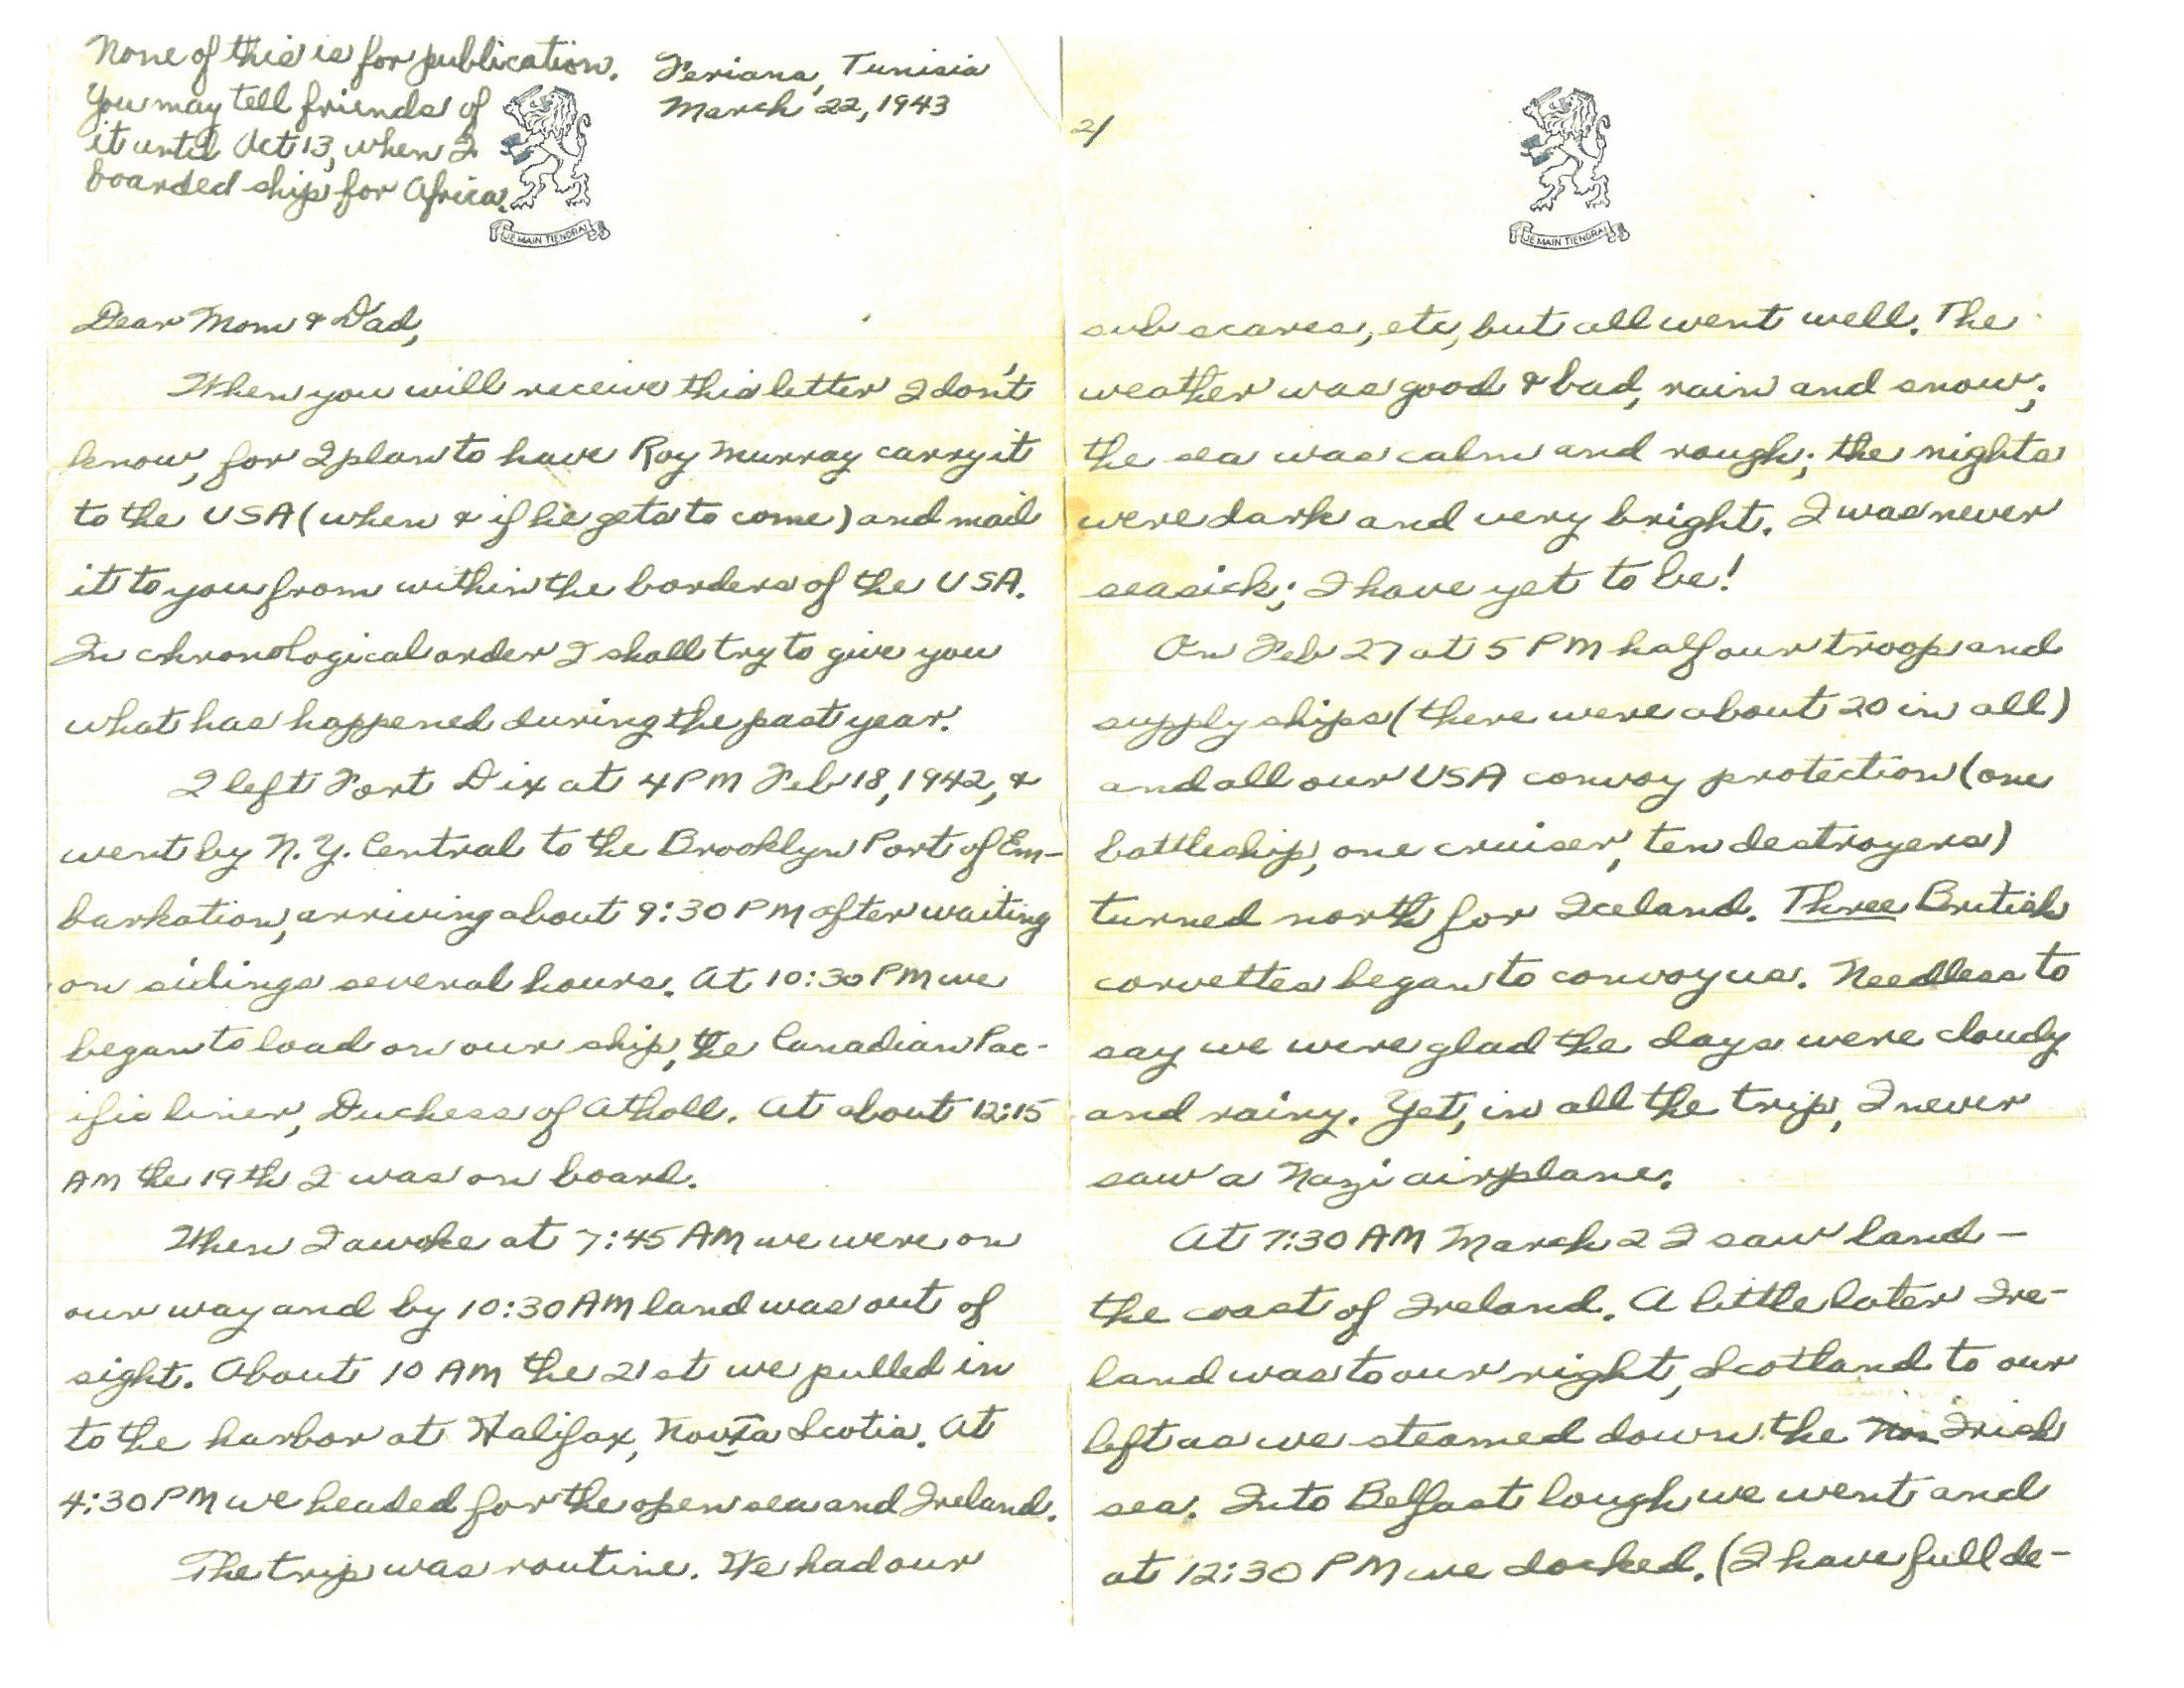 None of this is for publication.
You may tell friends of
it until Oct 13, when I
boarded ship for Africa.
Feriana, Tunisia
March 22, 1943
JE MAIN TIENDRAI
Dear Mom & Dad,
When you will receive this letter I don't
know, for I plan to have Roy Murray carry it
to the USA (when & if he gets to come) and mail
it to you from within the borders of the USA.
In chronological order I shall try to give you
what has happened during the past year.
I left Fort Dix at 4 PM Feb 18, 1942, &
went by N.Y. Central to the Brooklyn Port of Em-
barkation, arriving about 9:30 PM after waiting
on sidings several hours. At 10:30 PM we
began to load on our ship, the Canadian Pac-
ific liner, Duchess of Atholl. At about 12:15
AM the 19th I was on board.
When I awoke at 7:45 AM we were on
our way and by 10:30 AM land was out of
sight. About 10 AM the 21st we pulled in
to the harbor at Halifax, Nova Scotia. At
4:30 PM we headed for the open sea and Ireland.
The trip was routine. We had our
2/
JE MAIN TIENDRAI
sub scares, etc, but all went well. The
weather was good & bad, rain and snow;
the sea was calm and rough; the nights
were dark and very bright. I was never
seasick; I have yet to be!
On Feb 27 at 5 PM half our troop and
supply ships (there were about 20 in all)
and all our USA convoy protection (one
battleship, one cruiser, ten destroyers)
turned north for Iceland. Three British
corvettes began to convoy us. Needless to
say we were glad the days were cloudy
and rainy. Yet, in all the trip, I never
saw a Nazi airplane.
At 7:30 AM March 2 I saw land –
the coast of Ireland. A little later Ire-
land was to our right, Scotland to our
left as we steamed down the Irish
sea. Into Belfast lough we went and
at 12:30 PM we docked. (I have full de-